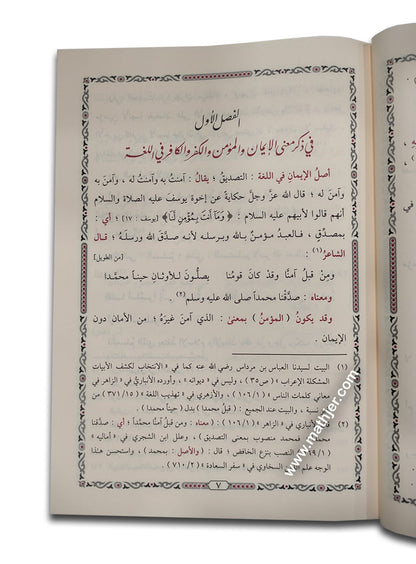 الفصل الأول
في ذكر معنى الإيمان والمؤمن والكفر والكافر في اللغة
أصلُ الإيمانِ في اللغة : التصديقُ ؛ يقالُ : آمنتُ به وآمنتُ له ، وآمنَ به
وآمنَ له ؛ قال الله عزَّ وجلَّ حكايةً عن إخوة يوسفَ عليه الصلاة والسلام
أنهم قالوا لأبيهم عليه السلام : ﴿ وَمَا أَنتَ بِمُؤْمِنٍ لَنَا ﴾ [يوسف : ١٧] ؛ أي :
بمصدِّقٍ ، فالعبدُ مؤمنٌ بالله وبرسله لأنه صدَّقَ اللهَ ورسلَهُ ؛ قال
الشاعرُ(١) : [من الطويل]
ومِنْ قبلُ آمنَّا وقدْ كانَ قومُنا يصلُّونَ للأوثانِ حيناً محمَّدا
ومعناه : صدَّقْنا محمداً صلى الله عليه وسلم(٢) .
وقد يكونُ ( المؤمنُ ) بمعنى : الذي آمنَ غيرَهُ ؛ من الأمان دون
الإيمان .
(١) البيت لسيدنا العباس بن مرداس رضي الله عنه كما في « اكتشف لغات الأبيات
المشكلة الإعراب » ( ص٣٥ ) ، وليس في « ديوانه » ، وأورده الأنباري في « الزاهر في
معاني كلمات الناس » ( ١٠٦/١ ) ، والأزهري في « تهذيب اللغة » ( ٣٧١/١٥ )
نسبة ، والبيت عند الجميع : ( قبل محمد ) بدل ( حيناً محمدا ) .
(٢) الأنباري في « الزاهر » ( ١٠٦/١ ) : ( معناه : من قبلُ آمنَّا محمداً ؛ أي : صدَّقنا
محمداً ، فمحمد منصوب بمعنى التصديق ) ، وعلل ابن الشجري في « أماليه »
النصب بنزع الخافض ؛ قال : ( والأصل : بمحمد ) ، واستحسن هذا
الوجه علم السخاوي في « سفر السعادة » ( ٧١٠/٢ ) .
٧
www.mathjer.com